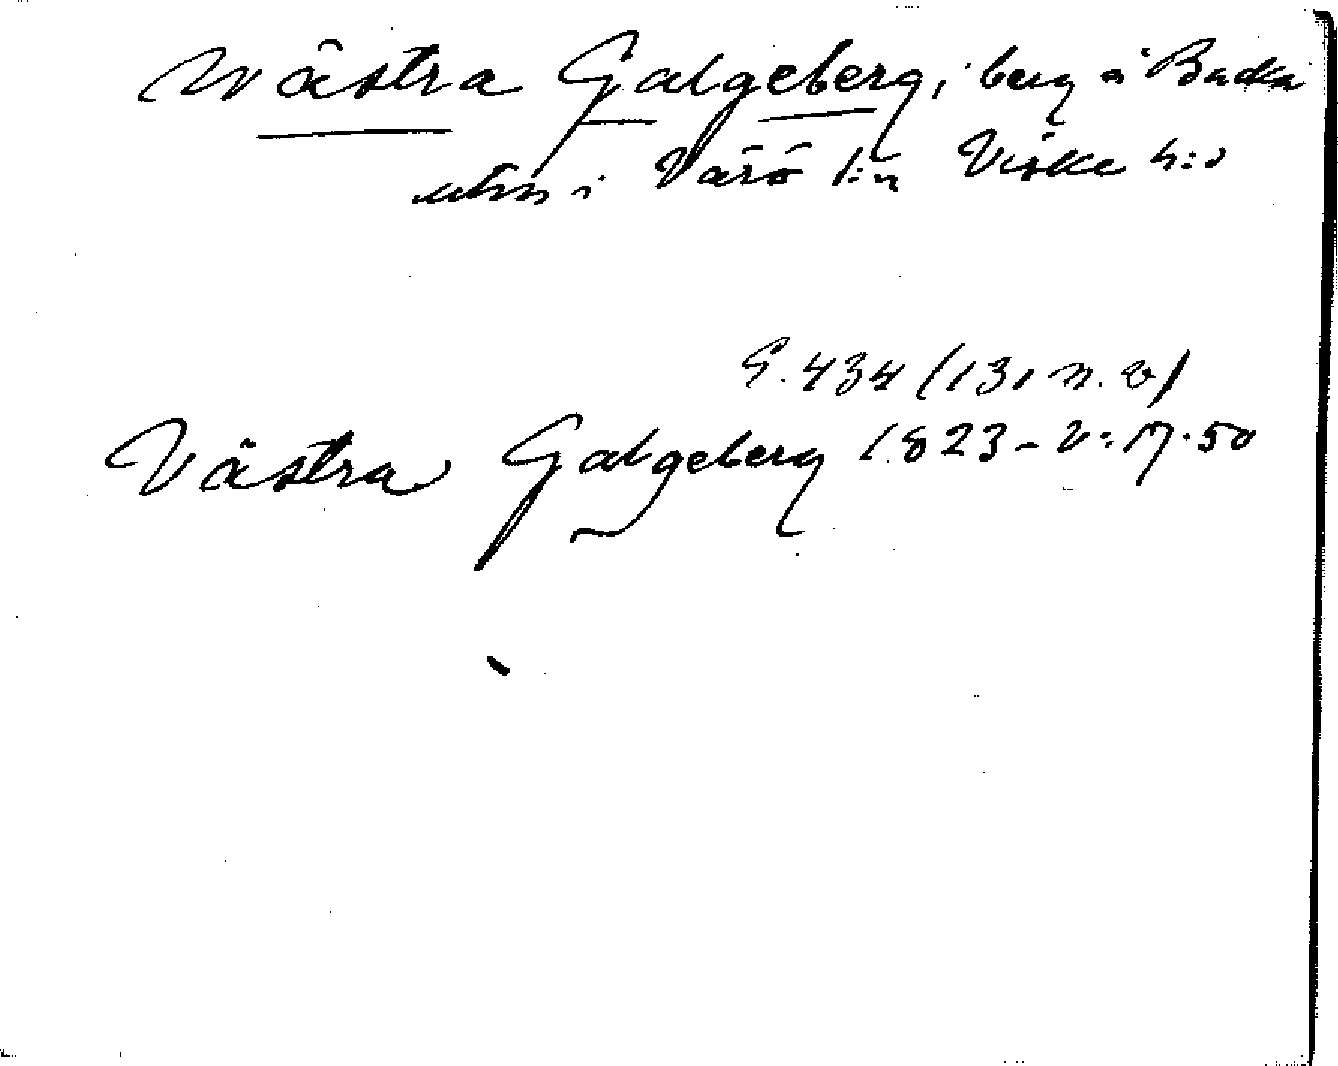 Västra Galgeberg, berg å Backa
i Värö s:n Viske h:d
G. 434 (131 n. v)
Västra Galgeberg 1823 - V: 17. 50